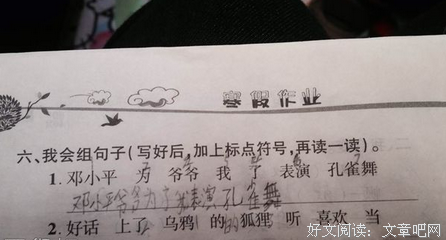 寒假作业
六、我会组句子(写好后,加上标点符号,再读一读)。
1. 邓小平 为 爷爷 我 了 表演 孔雀舞
邓小平爷爷为了我表演孔雀舞
2. 好话 上了 乌鸦 的 狐狸 听 喜欢 当
好文阅读:文章吧网